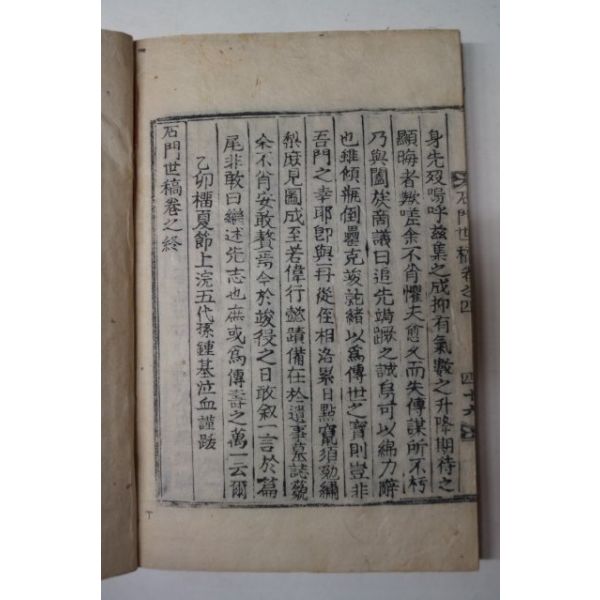 石門世稿卷之四 四十六
身先歿嗚呼玆集之成抑有氣數之升降期待之
顯晦者歟嗟余不肖懼夫愈久而失傳謀所不朽
乃與闔族啇議曰追先竭蹶之誠曷可以綿力辭
也雖傾甁倒罍克竣訖緖以爲傳世之寶則豈非
吾門之幸耶卽與再從侄相洛累日點竄須勉繡
梨庶見圖成至若偉行懿蹟備在於遺事墓誌藐
余不肖安敢贅焉今於竣役之日敢叙一言於篇
尾非敢曰繼述先志也庶或爲傳壽之萬一云爾
乙卯榴夏節上浣五代孫鍾基泣血謹跋
石門世稿卷之終